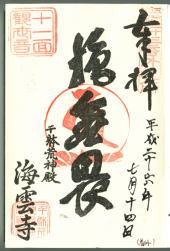 奉拝
平成二十六年
七月十四日
施無畏
千躰荒神殿
海雲寺
十一面
観世音